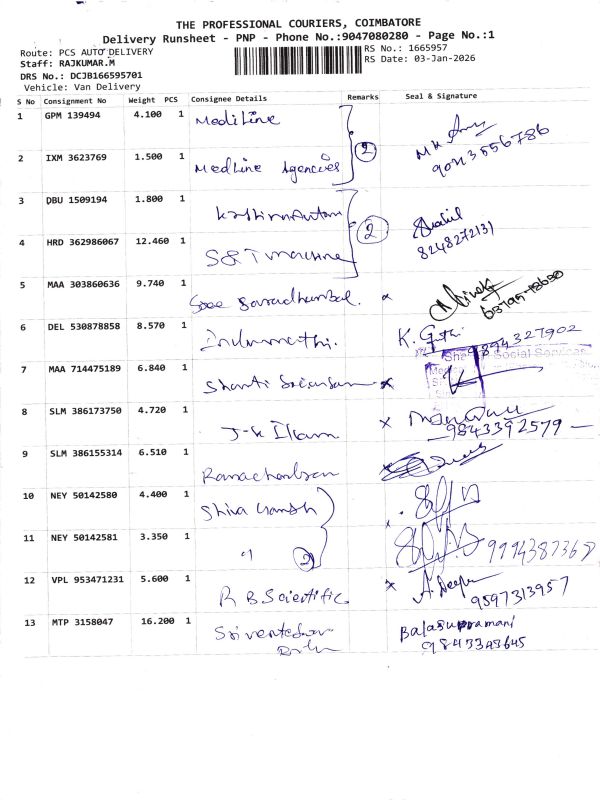 THE PROFESSIONAL COURIERS, COIMBATORE
Delivery Runsheet - PNP - Phone No.:9047080280 - Page No.:1
Route: PCS AUTO DELIVERY
RS No.: 1665957
Staff: RAJKUMAR.M
RS Date: 03-Jan-2026
DRS No.: DCJB166595701
Vehicle: Van Delivery
S No Consignment No Weight PCS Consignee Details Remarks Seal & Signature
1 GPM 139494 4.100 1 Mediline
2 IXM 3623769 1.500 1 Medline Agencies 2
9043556786
3 DBU 1509194 1.800 1
4 HRD 362986067 12.460 1 S&T machine 2
8248272131
5 MAA 303860636 9.740 1
6 DEL 530878858 8.570 1 Indumathi.
9894327902
7 MAA 714475189 6.840 1 Shanti
Social Services
8 SLM 386173750 4.720 1 J-K
9843392579
9 SLM 386155314 6.510 1 Ramachandran
10 NEY 50142580 4.400 1 Shiva Vamsh
11 NEY 50142581 3.350 1 " 2 9994387367
12 VPL 953471231 5.600 1 R B Scientific A. Deepa
9597313957
13 MTP 3158047 16.200 1 Balasupramani
9843343645